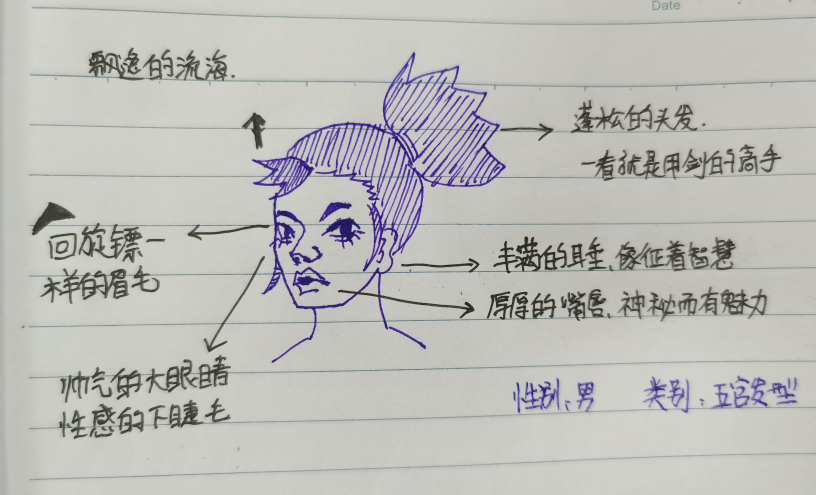 Date
飘逸的流海.
蓬松的头发.
一看就是用剑的高手
回旋镖一
样的眉毛
丰满的耳垂、象征着智慧
厚厚的嘴唇、神秘而有魅力
帅气的大眼睛
性感的下睫毛
性别：男 类别：五官发型